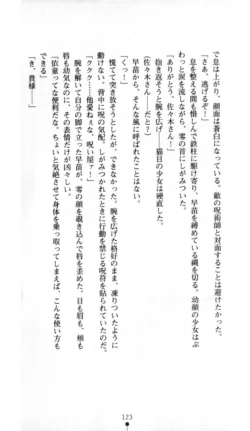 で息は上がり、顔面は蒼白になっている。敵の呪術師と対面することは避けたかった。
「さあ、逃げるぞ！」
わずかな間も惜しんで鉄柱に駆け寄り、早苗を縛めている縄を切る。幼顔の少女はぶ
わっと涙を流しながら、零の首にしがみついた。
「ありがとう、佐々木さん！」
抱き返そうと腕を広げ――猫目の少女は硬直した。
（佐々木さん――だと？）
早苗から、そんな風に呼ばれたことはない。
「くっ！」
慌てて突き放そうとしたが、できなかった。腕を広げた格好のまま、凍りついたように
動けない。背中に呪の気配。しがみつかれたときに行動を禁じる呪符を貼られていたのだ。
「ククク……他愛ねぇな、呪い屋ァ！」
腕を解いて自分の脚で立った早苗が、零の顔を覗き込んで唇を歪めた。目も眉も、頬も
唇も幼気なのに、その表情だけが凶々しい。
「依童ってな便利だな。ちょいと気絶させて身体を乗っ取ってしまえば、こんな使い方も
できる」
「き、貴様――」
123